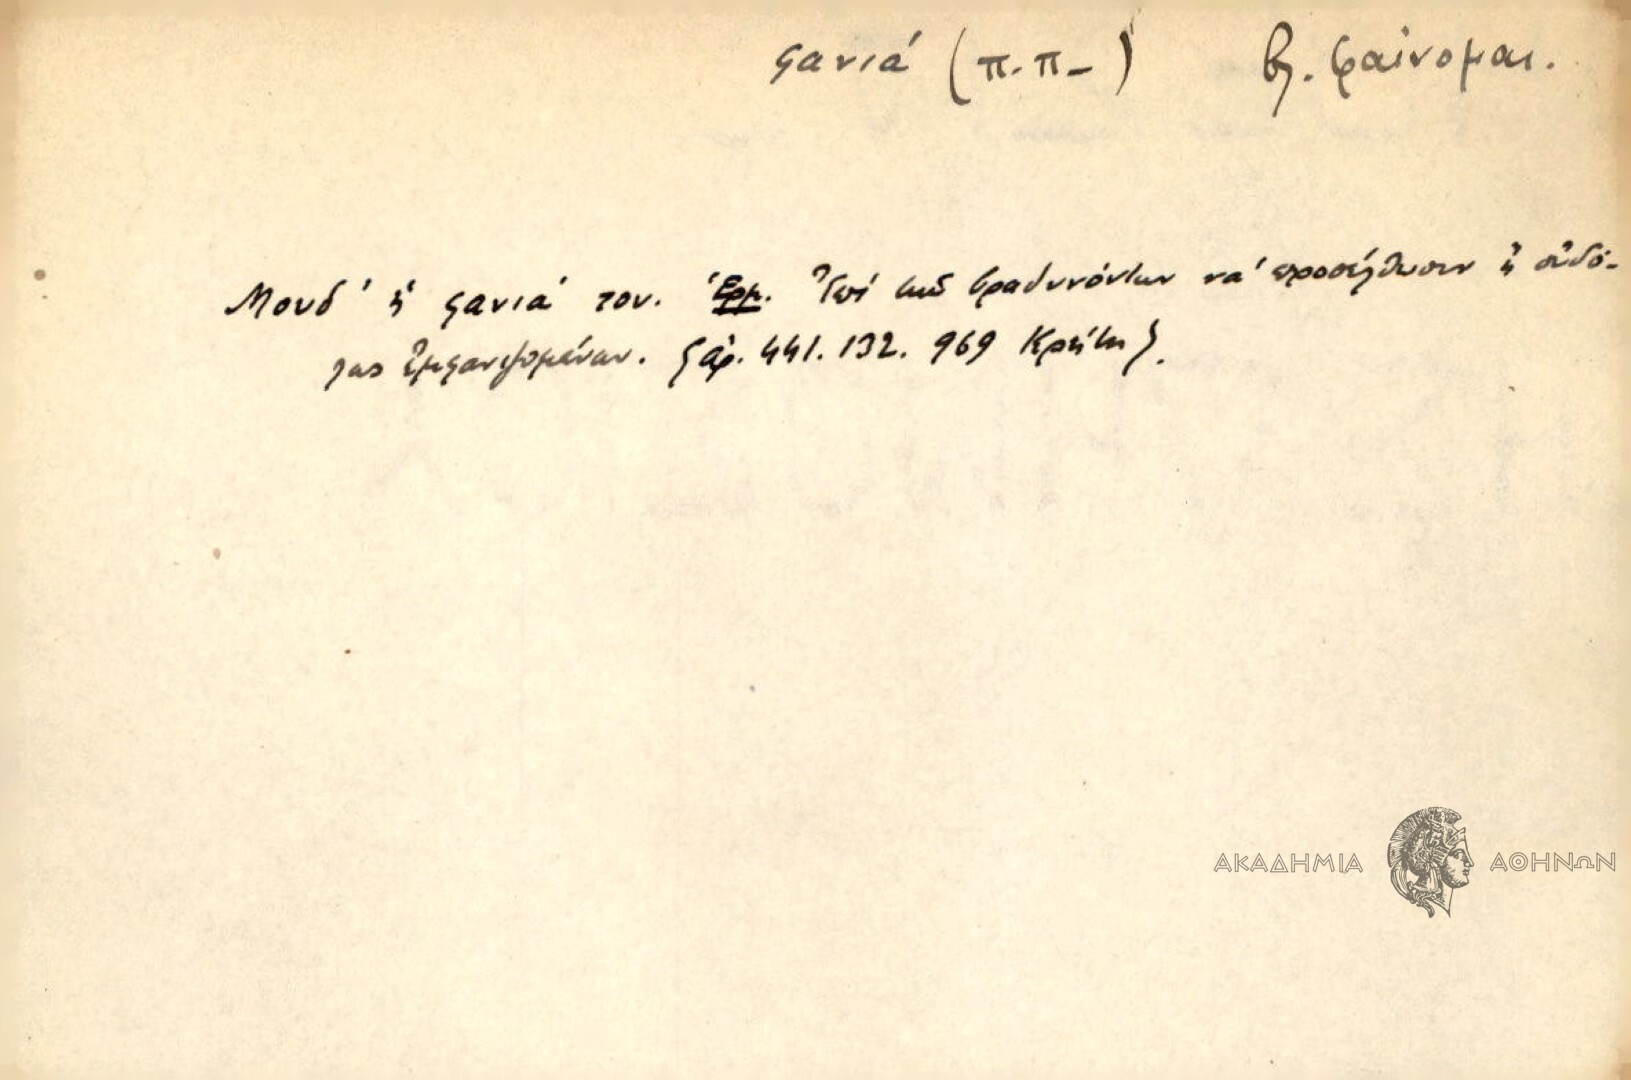 φανιά (π.π-) βλ. φαίνομαι.
Μουδ' ἡ φανιά του. Ἑρμ. Ἐπὶ τῶν βραδυνόντων νὰ προσέλθωσιν ἢ οὐδό-
λως ἐμφανιζομένων. {ἀρ. 441. 132. 969 Κρήτη}.
ΑΚΑΔΗΜΙΑ ΑΘΗΝΩΝ